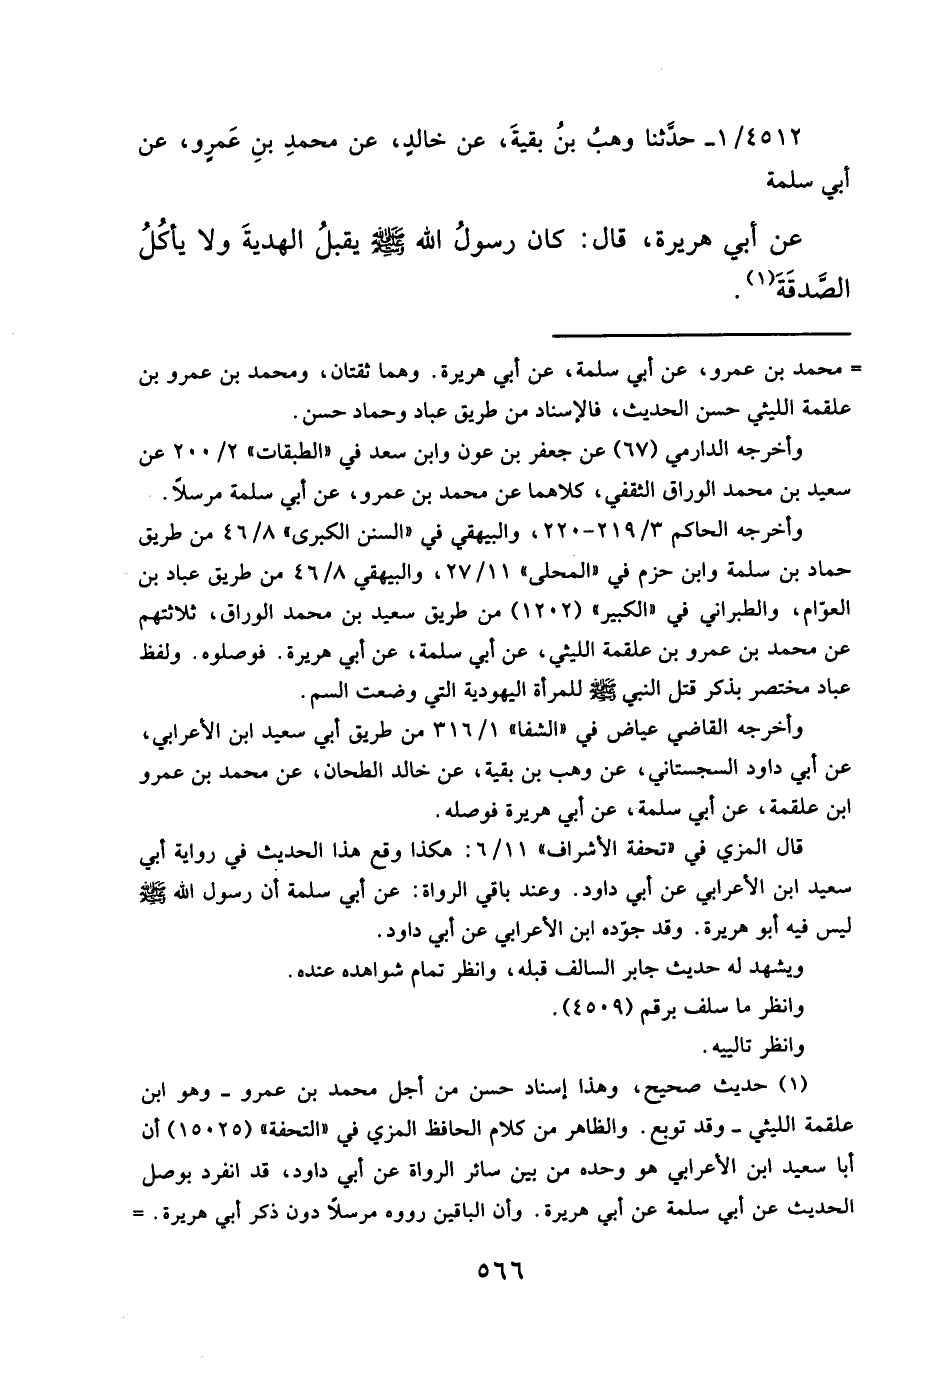 ١/٤٥١٢ـ حدَّثنا وهبُ بنُ بقيةَ، عن خالدٍ، عن محمدِ بنِ عَمرٍو، عن
أبي سلمة
عن أبي هريرة، قال: كان رسولُ الله ﷺ يقبلُ الهديةَ ولا يأكُلُ
الصَّدقَةَ(١).
= محمد بن عمرو، عن أبي سلمة، عن أبي هريرة. وهما ثقتان، ومحمد بن عمرو بن
علقمة الليثي حسن الحديث، فالإسناد من طريق عباد وحماد حسن.
وأخرجه الدارمي (٦٧) عن جعفر بن عون وابن سعد في «الطبقات» ٢/ ٢٠٠ عن
سعيد بن محمد الوراق الثقفي، كلاهما عن محمد بن عمرو، عن أبي سلمة مرسلاً.
وأخرجه الحاكم ٣/ ٢١٩-٢٢٠، والبيهقي في «السنن الكبرى» ٨/ ٤٦ من طريق
حماد بن سلمة وابن حزم في «المحلى» ١١/ ٢٧، والبيهقي ٨/ ٤٦ من طريق عباد بن
العوّام، والطبراني في «الكبير» (١٢٠٢) من طريق سعيد بن محمد الوراق، ثلاثتهم
عن محمد بن عمرو بن علقمة الليثي، عن أبي سلمة، عن أبي هريرة. فوصلوه. ولفظ
عباد مختصر بذكر قتل النبي ﷺ للمرأة اليهودية التي وضعت السم.
وأخرجه القاضي عياض في «الشفا» ١/ ٣١٦ من طريق أبي سعيد ابن الأعرابي،
عن أبي داود السجستاني، عن وهب بن بقية، عن خالد الطحان، عن محمد بن عمرو
ابن علقمة، عن أبي سلمة، عن أبي هريرة فوصله.
قال المزي في «تحفة الأشراف» ١١/ ٦: هكذا وقع هذا الحديث في رواية أبي
سعيد ابن الأعرابي عن أبي داود. وعند باقي الرواة: عن أبي سلمة أن رسول الله ﷺ
ليس فيه أبو هريرة. وقد جوّده ابن الأعرابي عن أبي داود.
ويشهد له حديث جابر السالف قبله، وانظر تمام شواهده عنده.
وانظر ما سلف برقم (٤٥٠٩).
وانظر تالييه.
(١) حديث صحيح، وهذا إسناد حسن من أجل محمد بن عمرو ـ وهو ابن
علقمة الليثي ـ وقد توبع. والظاهر من كلام الحافظ المزي في «التحفة» (١٥٠٢٥) أن
أبا سعيد ابن الأعرابي هو وحده من بين سائر الرواة عن أبي داود، قد انفرد بوصل
الحديث عن أبي سلمة عن أبي هريرة. وأن الباقين رووه مرسلاً دون ذكر أبي هريرة. =
٥٦٦